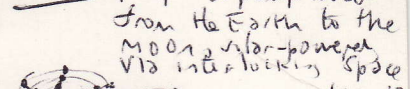 from the Earth to the
Moon, solar-powered
via interlocking space